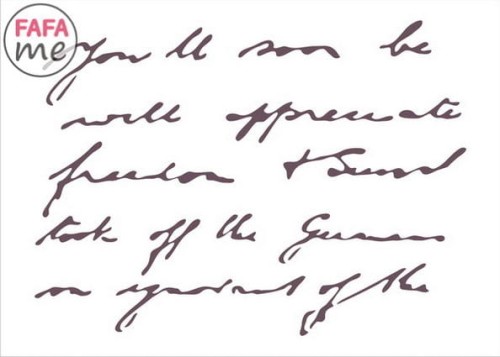 FAFA
me
You'll soon be
will appreciate
freedom &
took off the Germans
on of the